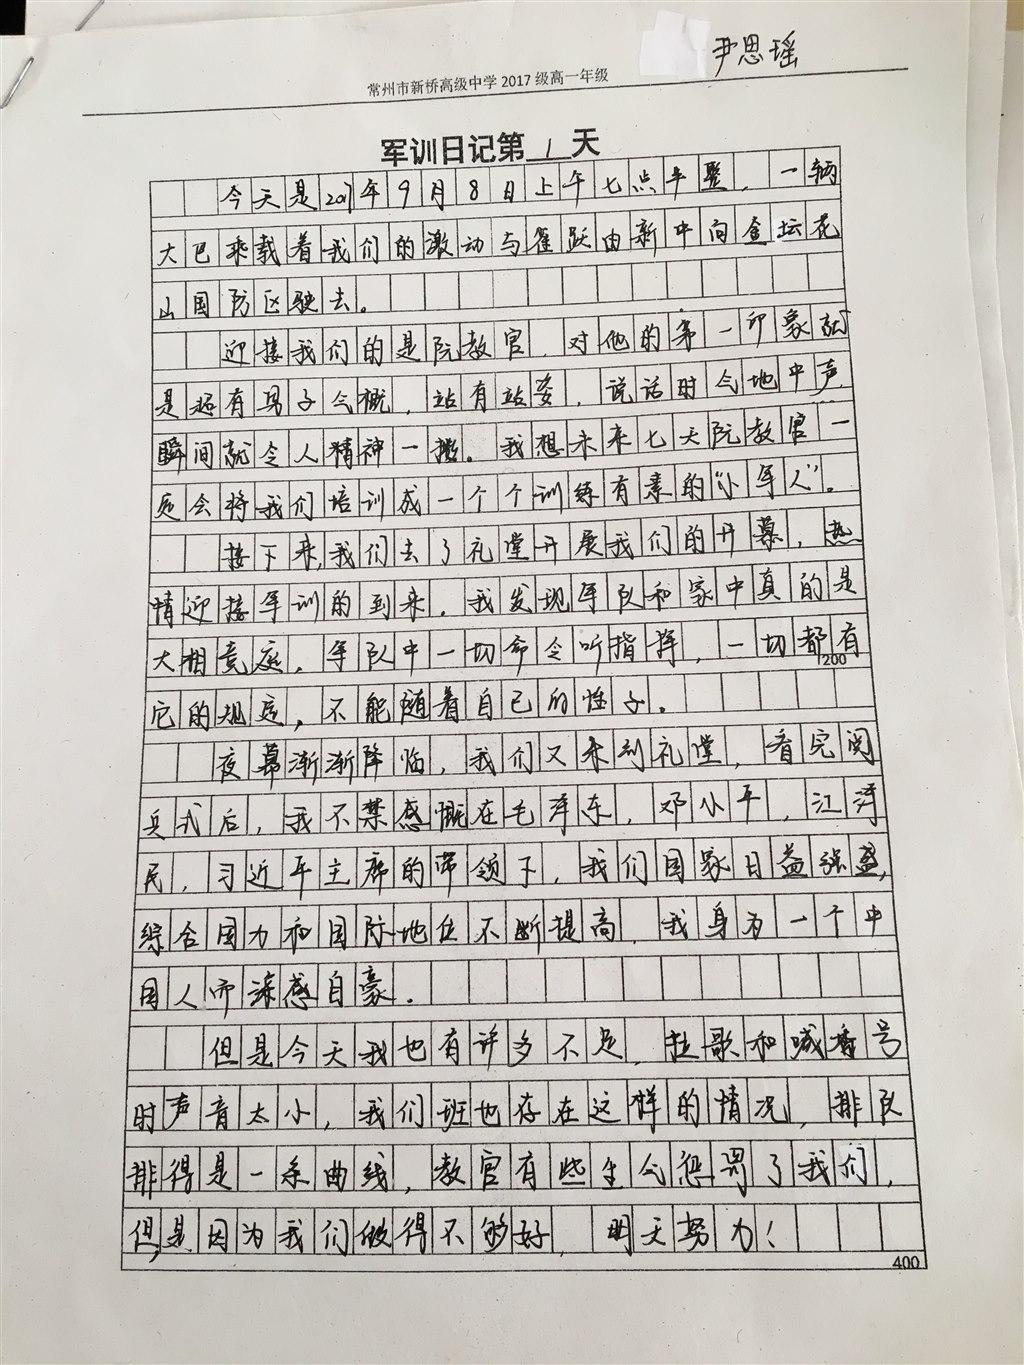 尹思瑶
常州市新桥高级中学2017级高一年级
军训日记第1天
今天是2017年9月8日上午七点半整，一辆
大巴乘载着我们的激动与雀跃由新中向金坛花
山国防区驶去。
迎接我们的是阮教官，对他的第一印象就
是超有男子气概，站有站姿，说话时气地中声，
瞬间就令人精神一振。我想未来七天阮教官一
定会将我们培训成一个个训练有素的“小军人”。
接下来，我们去了礼堂开展我们的开幕，热
情迎接军训的到来，我发现军队和家中真的是
大相竟庭，军队中一切命令听指挥，一切都有
200
它的规定，不能随着自己的性子。
夜幕渐渐降临，我们又来到礼堂，看完阅
兵式后，我不禁感慨在毛泽东，邓小平，江泽
民，习近平主席的带领下，我们国家日益强盛，
综合国力和国际地位不断提高，我身为一个中
国人而深感自豪。
但是今天我也有许多不足，拉歌和喊番号
时声音太小，我们班也存在这样的情况，排队
排得是一条曲线，教官有些生气惩罚了我们，
但，是因为我们做得不够好，明天努力！
400